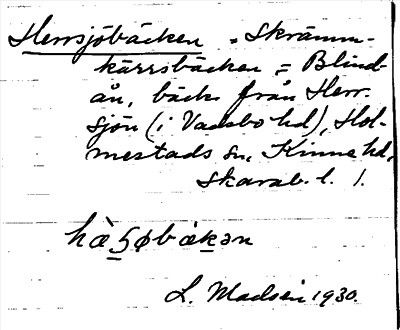 Herrsjöbäcken = Skrämm-
kärrsbäcken = Blind-
ån, bäck från Herr-
sjön (i Vadsbo hd), Hol-
mestads sn, Kinne hd,
Skarab. l. 1.
L. Madsén 1930.